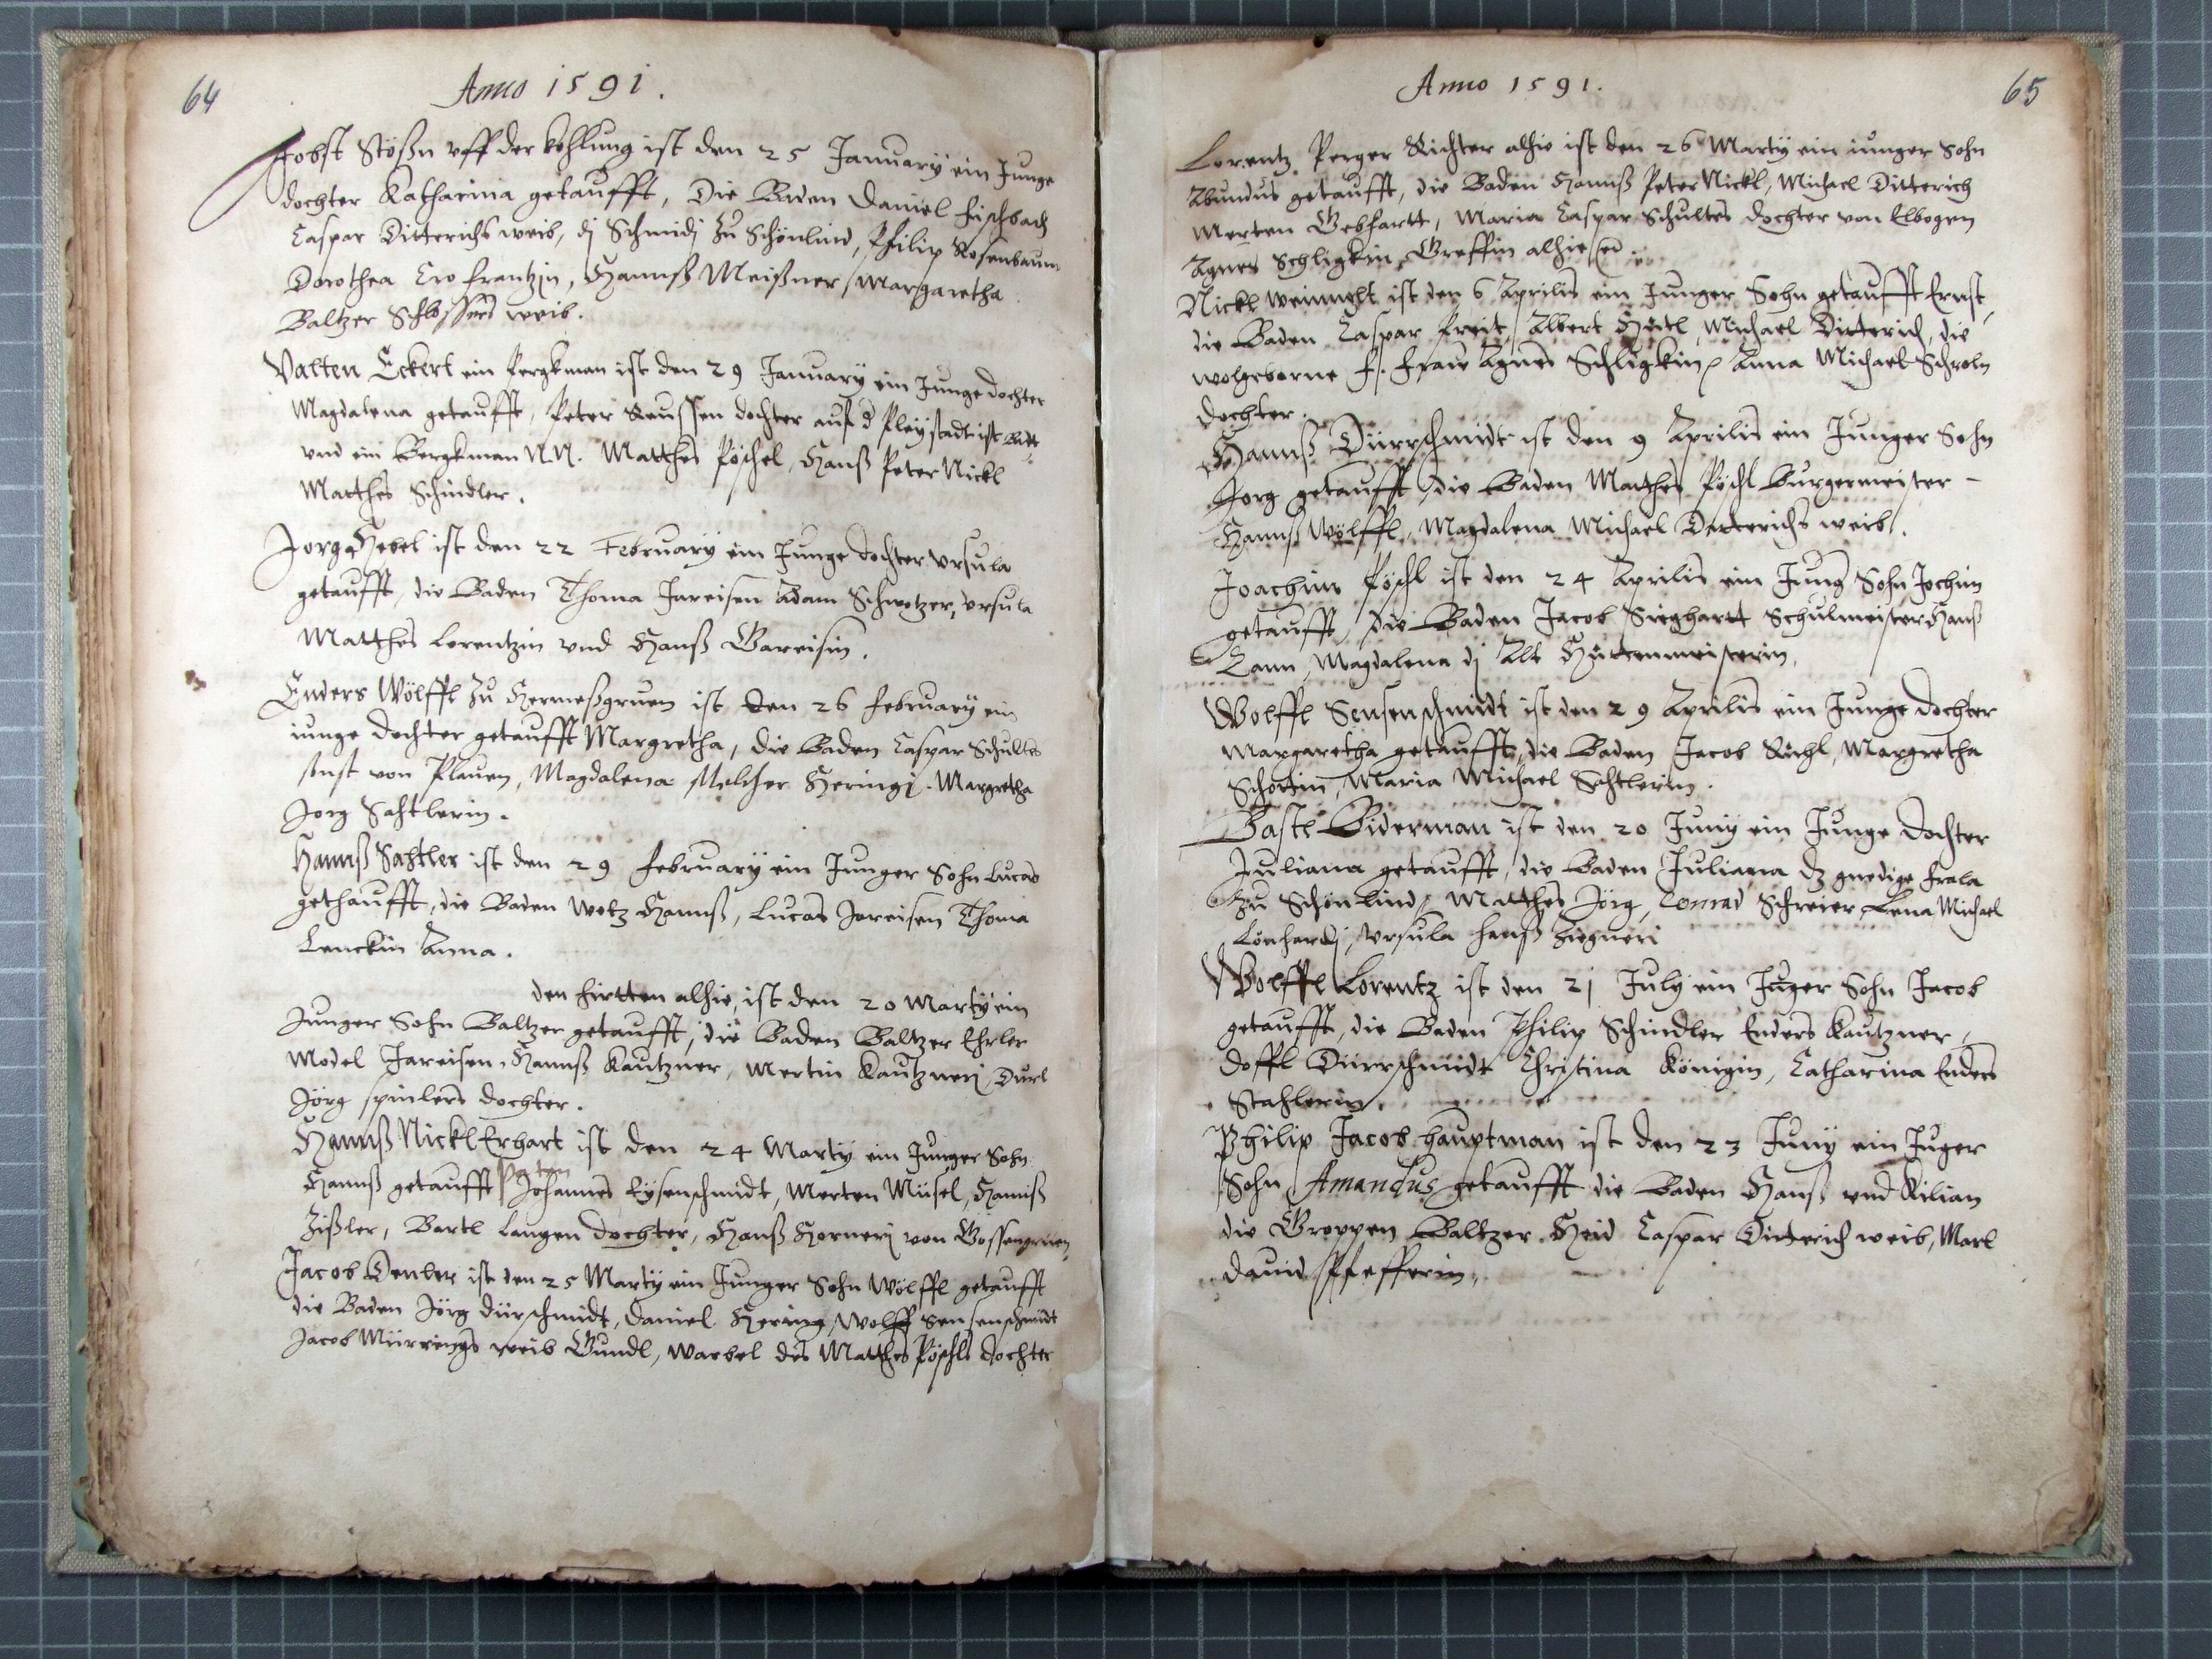 64
Anno 1591.
Jobst Stößn uff der kohlung ist den 25 January ein Junge
dochter Katharina getaufft, Die Baden Daniel fischbach
Caspar Ditterichs weib, dj Schmidj zu Schönlind, Philip Rosenbaum
Dorothea Leo frantzin, Hannß Meißner, Margaretha
Baltzer Schlossers weib.
Valten Eckert ein Pergkman ist den 29 January ein Junge dochter
Magdalena getaufft, Peter Reussen dochter auf d Pleystadt ist
vnd ein Bergkman N.N. Matthes Pöschel, Hanß Peter Nickl
Matthes Schindler.
Jorg Hebel ist den 22 February ein Junge dochter Vrsula
getaufft, die Baden Thoma Jareisen Adam Schwetzer, Vrsula
Matthes Lorentzin vnd Hanß Gareisin.
Enders Wölffl zu Hermeßgruen ist den 26 february ein
iunge dochter getaufft Margretha, die Baden Caspar Schultes
sonst von Plauen, Magdalena Melcher Heringj. Margretha
Jorg Sahtlerin.
Hannß Sahtler ist den 29 february ein Junger Sohn Lucas
gethaufft, die Baden Wetz Hannß, Lucas Jareisen Thoma
Lenckin Anna.
den hirtten alhie, ist den 20 Marty ein
Junger Sohn Baltzer getaufft, die Baden Baltzer Ehrler
Model Jareisen, Hannß Kautzner, Mertin Kautznerj, Durl
Jörg spinlers dochter.
Hannß Nickl Erhart ist den 24 Marty ein Junger Sohn
Paten
Hannß getaufft Johannes Eysenschmidt, Merten Müsel, Hannß
Zißler, Bartl Langen dochter, Hanß Hornerj von Gossengruen,
Jacob Denler ist den 25 Marty ein Junger Sohn Wölffl getaufft
die Baden Jörg dürschmidt, Daniel Hering, Wolff Sensenschmidt
Jacob Mürrings weib Gundl, Warbel des Matthes Pöschls dochter
65
Anno 1591.
Lorentz Perger Richter alhie ist den 26 Marty ein iunger Sohn
Abundus getaufft, die Baden Hannß Peter Nickl, Michael Ditterich
Merten Gebhartt, Maria Caspar Schultes dochter von Elbogen
Agnes Schligkin, Greffin alhie
Nickl weinnehlt ist den 6 Aprilis ein Junger Sohn getaufft Ernst,
die Baden Caspar Preit, Albert Hütl, Michael Ditterich, die
wolgeborne f. fraw Agnes Schligkin, Anna Michael Schroln
dochter.
Hannß Dürrschmidt ist den 9 Aprilis ein Junger Sohn
Jorg getaufft, die Baden Matthes Pöschl Burgermeister
Hannß Wölffl, Magdalena Michael Ditterichs weib.
Joachim Pöschl ist den 24 Aprilis ein Jung Sohn Jochim
getaufft, die Baden Jacob Sieghartt Schulmeister Hanß
Zann, Magdalena dj Alt Hüttenmeisterin.
Wolffl Sensenschmidt ist den 29 Aprilis ein Junge dochter
Margaretha getaufft, die Baden Jacob Richl, Margretha
Schottin, Maria Michael Sahtlerin.
Bastl Biderman ist den 20 Juny ein Junge dochter
Juliana getaufft, die Baden Juliana dz gnedige frala
zu Schönlind, Matthes Jörg, Conrad Schreier, Lena Michael
Lönhardj, Vrsula Hanß Ziegneri
Wolffl Lorentz ist den 21 July ein Juger Sohn Jacob
getaufft, die Baden Philip Schindler Enders Kautzner,
doffl Dürrschmidt Christina Königin, Catharina Enders
Stahlerin.
Philip Jacob hauptman ist den 23 Juny ein Juger
Sohn Amandus getaufft die Baden Hanß vnd Kilian
die Groppen Baltzer Heid Caspar Ditterich weib, Marl
Dauid Pfefferin.